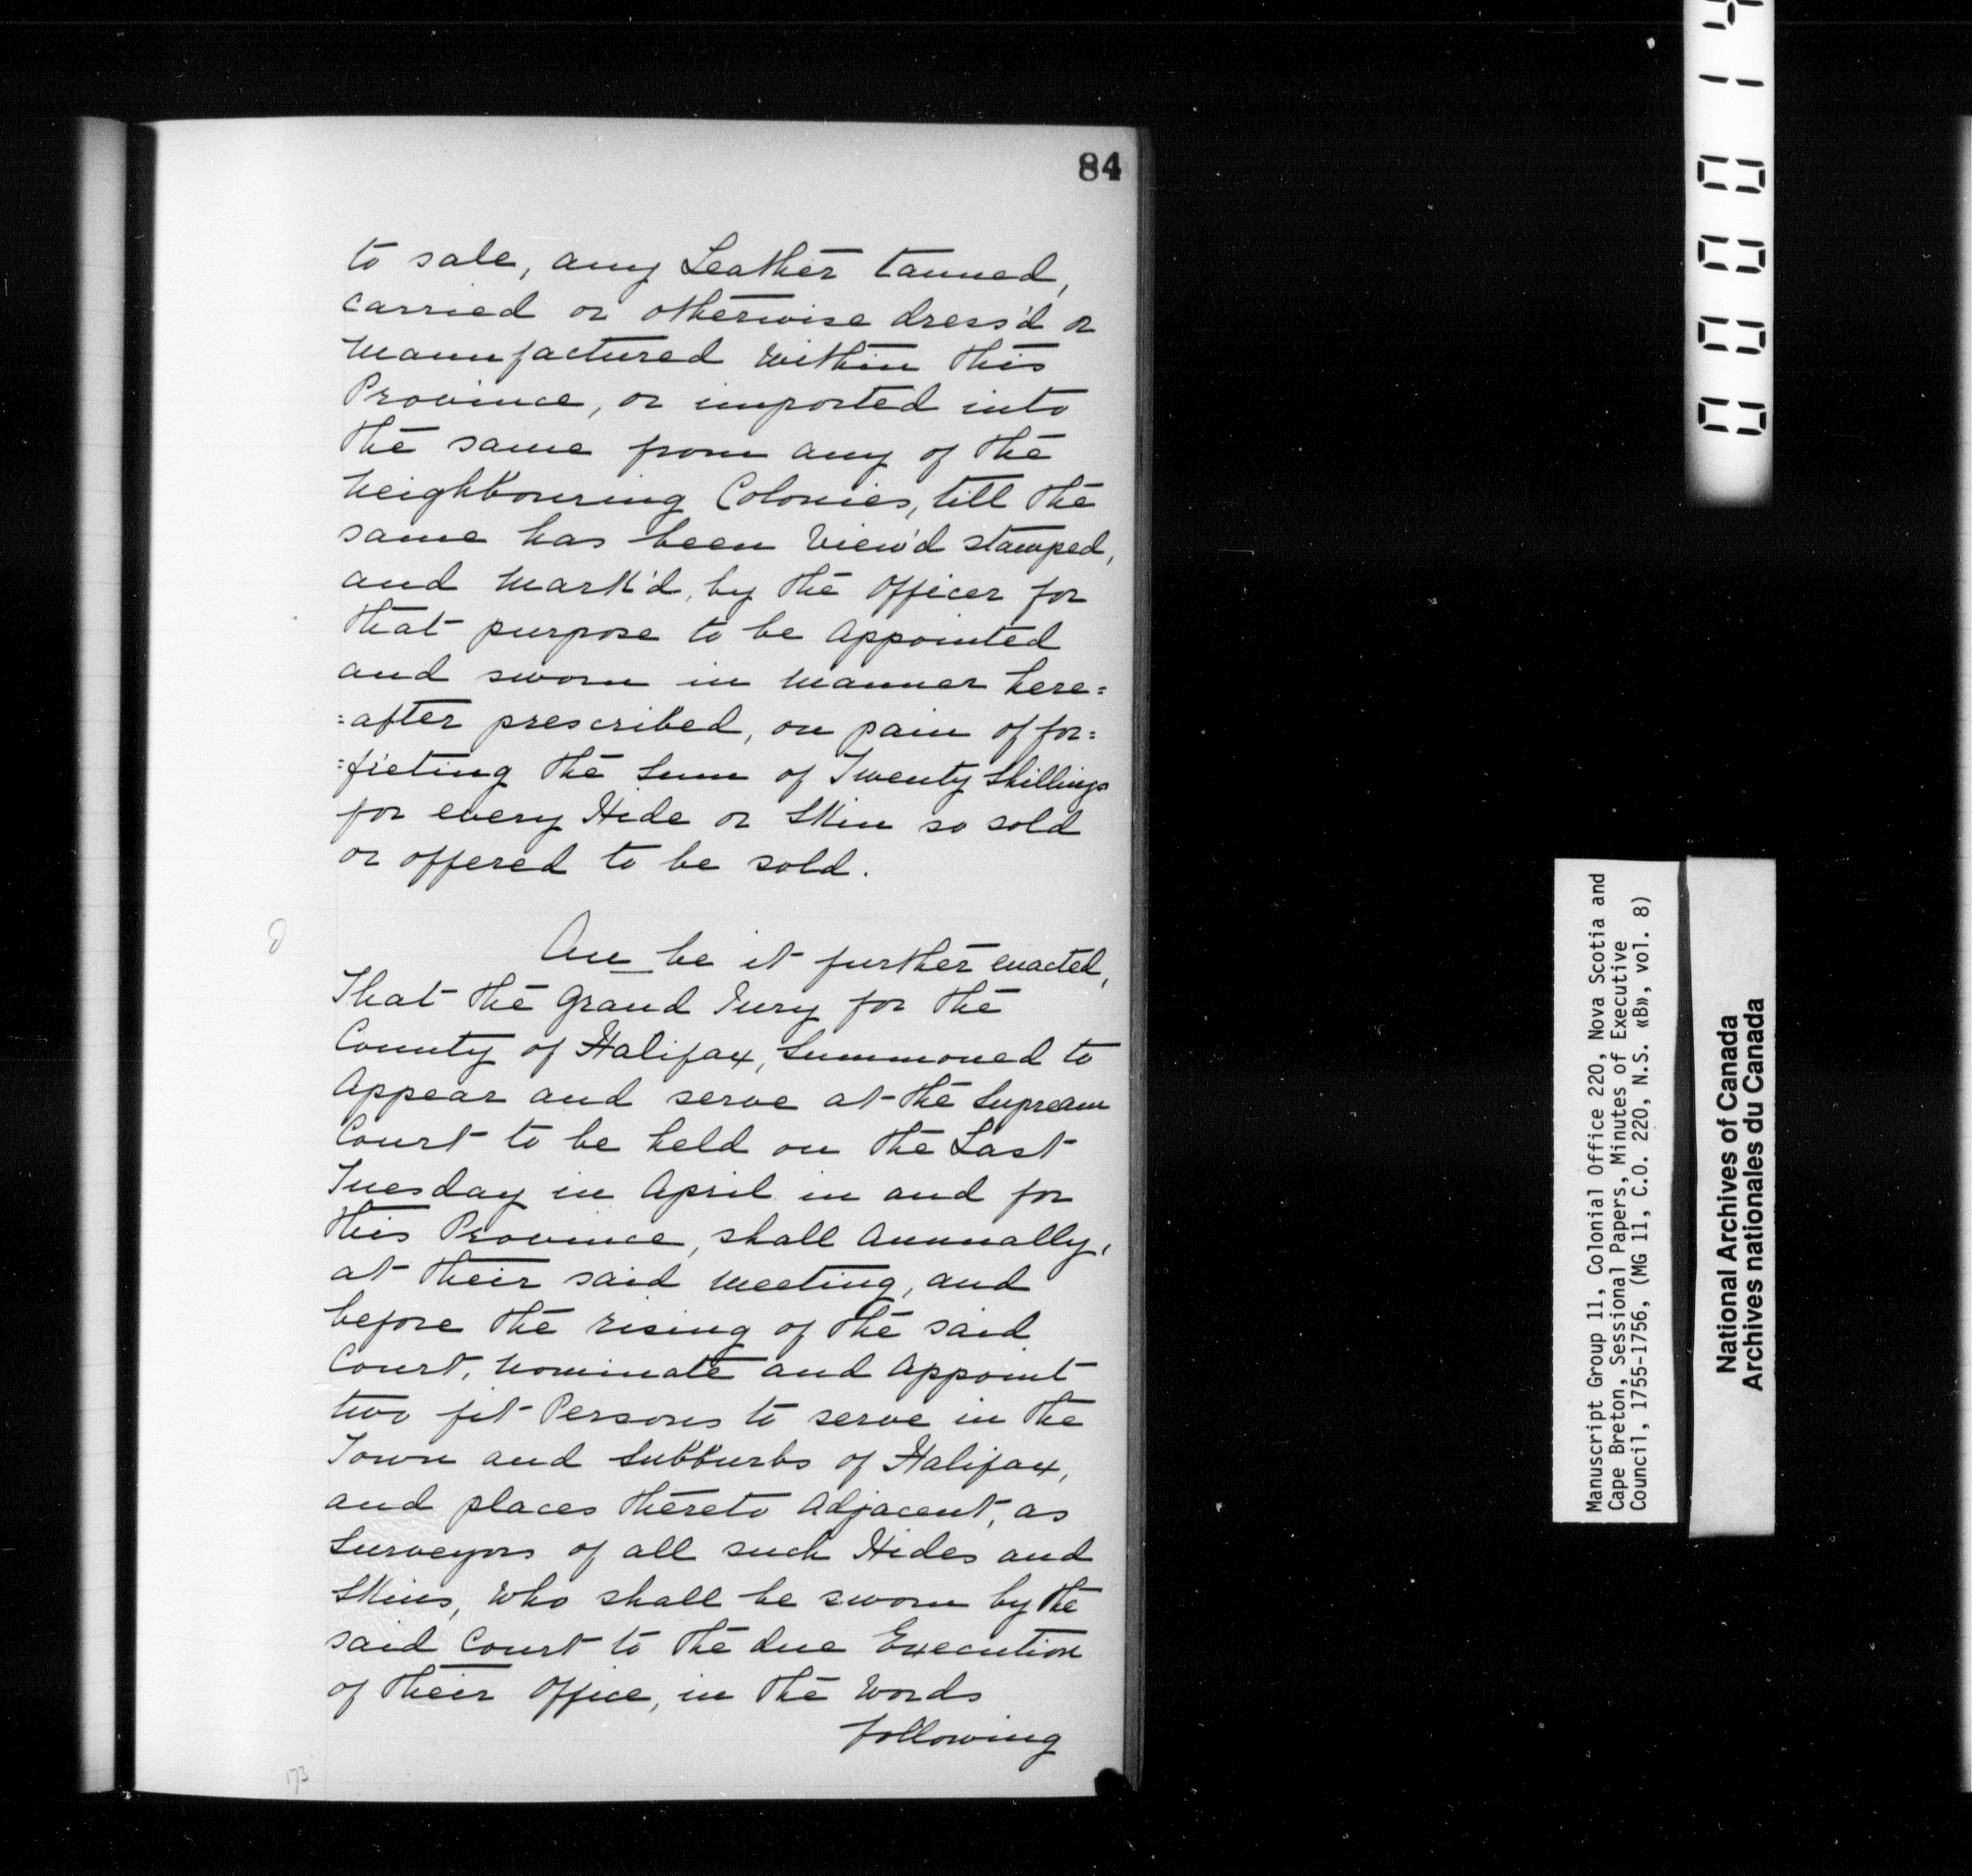 84
to sale, any Leather tanned,
carried or otherwise dress'd or
Manufactured within this
Province, or imported into
the same from any of the
Neighbouring Colonies, till the
same has been View'd stamped,
and Mark'd, by the Officer for
that purpose to be Appointed
and sworn in Manner here=
=after prescribed, on pain of for=
=fieting the Sum of Twenty Shillings
for every Hide or Skin so sold
or offered to be sold.
d
An be it further enacted,
That the Grand Jury for the
County of Halifax, Summoned to
Appear and serve at the Supream
Court to be held on the Last
Tuesday in April in and for
this Province, shall Annually,
at their said Meeting, and
before the rising of the said
Court, Nominate and Appoint
two fit Persons to serve in the
Town and Subburbs of Halifax,
and places thereto Adjacent, as
Surveyors of all such Hides and
Skins, Who shall be sworn by the
said Court to the due Execution
of their Office, in the Words
following
173
00014
Manuscript Group 11, Colonial Office 220, Nova Scotia and
Cape Breton, Sessional Papers, Minutes of Executive
Council, 1755-1756, (MG 11, C.O. 220, N.S. «B», vol. 8)
National Archives of Canada
Archives nationales du Canada